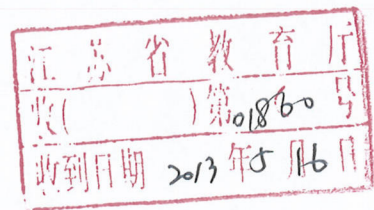 江苏省教育厅
收( )第01860号
收到日期 2013年5月16日